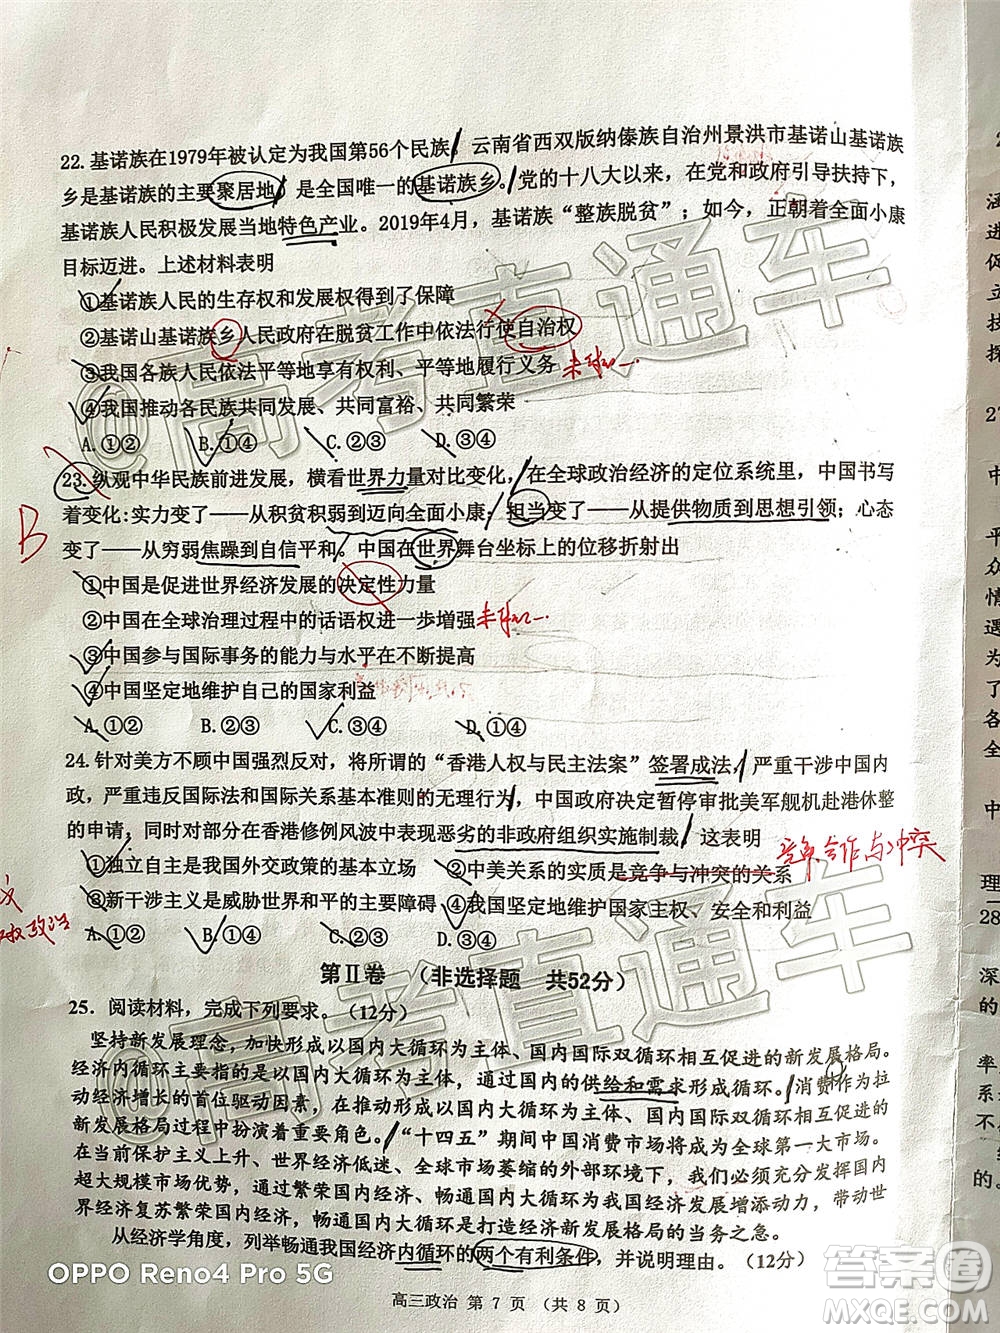 22. 基诺族在1979年被认定为我国第56个民族。云南省西双版纳傣族自治州景洪市基诺山基诺族
乡是基诺族的主要聚居地，是全国唯一的基诺族乡。党的十八大以来，在党和政府引导扶持下，
基诺族人民积极发展当地特色产业。2019年4月，基诺族“整族脱贫”；如今，正朝着全面小康
目标迈进。上述材料表明
①基诺族人民的生存权和发展权得到了保障
②基诺山基诺族乡人民政府在脱贫工作中依法行使自治权
③我国各族人民依法平等地享有权利、平等地履行义务 未体现
④我国推动各民族共同发展、共同富裕、共同繁荣
A.①② B.①④ C.②③ D.③④
23. 纵观中华民族前进发展，横看世界力量对比变化，在全球政治经济的定位系统里，中国书写
B
着变化:实力变了——从积贫积弱到迈向全面小康；担当变了——从提供物质到思想引领；心态
变了——从穷弱焦躁到自信平和。中国在世界舞台坐标上的位移折射出
①中国是促进世界经济发展的决定性力量
②中国在全球治理过程中的话语权进一步增强 未体现
③中国参与国际事务的能力与水平在不断提高
④中国坚定地维护自己的国家利益
A.①② B.②③ C.③④ D.①④
24. 针对美方不顾中国强烈反对，将所谓的“香港人权与民主法案”签署成法，严重干涉中国内
政，严重违反国际法和国际关系基本准则的无理行为，中国政府决定暂停审批美军舰机赴港休整
的申请，同时对部分在香港修例风波中表现恶劣的非政府组织实施制裁。这表明
竞争、合作与冲突
①独立自主是我国外交政策的基本立场 ②中美关系的实质是竞争与冲突的关系
③新干涉主义是威胁世界和平的主要障碍 ④我国坚定地维护国家主权、安全和利益
A.①② B.①④ C.②③ D.③④
第Ⅱ卷 （非选择题 共52分）
25. 阅读材料，完成下列要求。（12分）
坚持新发展理念，加快形成以国内大循环为主体、国内国际双循环相互促进的新发展格局。
经济内循环主要指的是以国内大循环为主体，通过国内的供给和需求形成循环。消费作为拉
动经济增长的首位驱动因素，在形成以国内大循环为主体、国内国际双循环相互促进的
新发展格局过程中扮演着重要角色。“十四五”期间中国消费市场将成为全球第一大市场。
在当前保护主义上升、世界经济低迷、全球市场萎缩的外部环境下，我们必须充分发挥国内
超大规模市场优势，通过繁荣国内经济、畅通国内大循环为我国经济发展增添动力，带动世
界经济复苏繁荣国内经济，畅通国内大循环是打造经济新发展格局的当务之急。
从经济学角度，列举畅通我国经济内循环的两个有利条件，并说明理由。（12分）
高三政治 第 7 页 （共 8 页）
OPPO Reno4 Pro 5G
@高考直通车
@高考直通车
答案圈
MXQE.COM